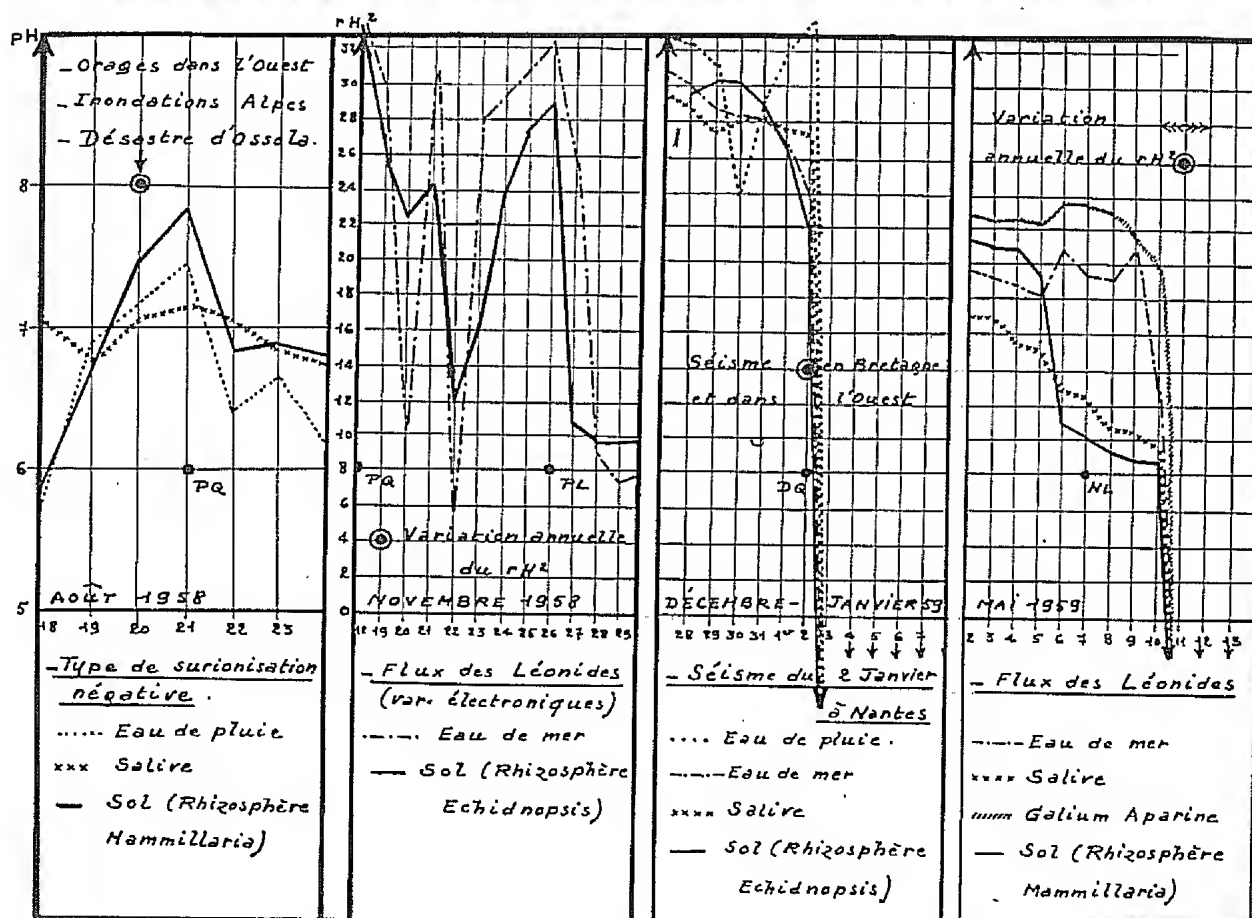 pH
- Orages dans l'Ouest
- Inondations Alpes
- Désastre d'Ossola.
8
7
6
5
PQ
AOÛT 1958
18 19 20 21 22 23
- Type de surionisation
négative.
...... Eau de pluie
xxx Salive
— Sol (Rhizosphère
Mammillaria)
rH²
32
30
28
26
24
22
20
18
16
14
12
10
8
6
4
2
0
PQ
PL
Variation annuelle
du rH²
NOVEMBRE 1958
18 19 20 21 22 23 24 25 26 27 28 29
- Flux des Léonides
(var. électroniques)
-.-.- Eau de mer
— Sol (Rhizosphère
Echidnopsis)
Séisme en Bretagne
et dans l'Ouest
DQ
DÉCEMBRE - JANVIER 59
28 29 30 31 1er 2 3 4 5 6 7
- Séisme du 2 Janvier
à Nantes
.... Eau de pluie.
-.-.- Eau de mer
xxxx Salive
— Sol (Rhizosphère
Echidnopsis)
Variation
annuelle du rH²
NL
MAI 1959
2 3 4 5 6 7 8 9 10 11 12 13
- Flux des Léonides
-.-.- Eau de mer
xxxx Salive
Galium Aparine
— Sol (Rhizosphère
Mammillaria)